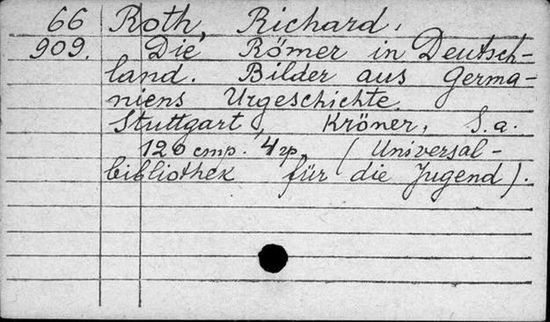 66 Roth, Richard.
909. Die Römer in Deutsch-
land. Bilder aus Germa-
niens Urgeschichte.
Stuttgart, Kröner, S.a.
126 стр. 4 гр. (Universal-
bibliothek für die Jugend).